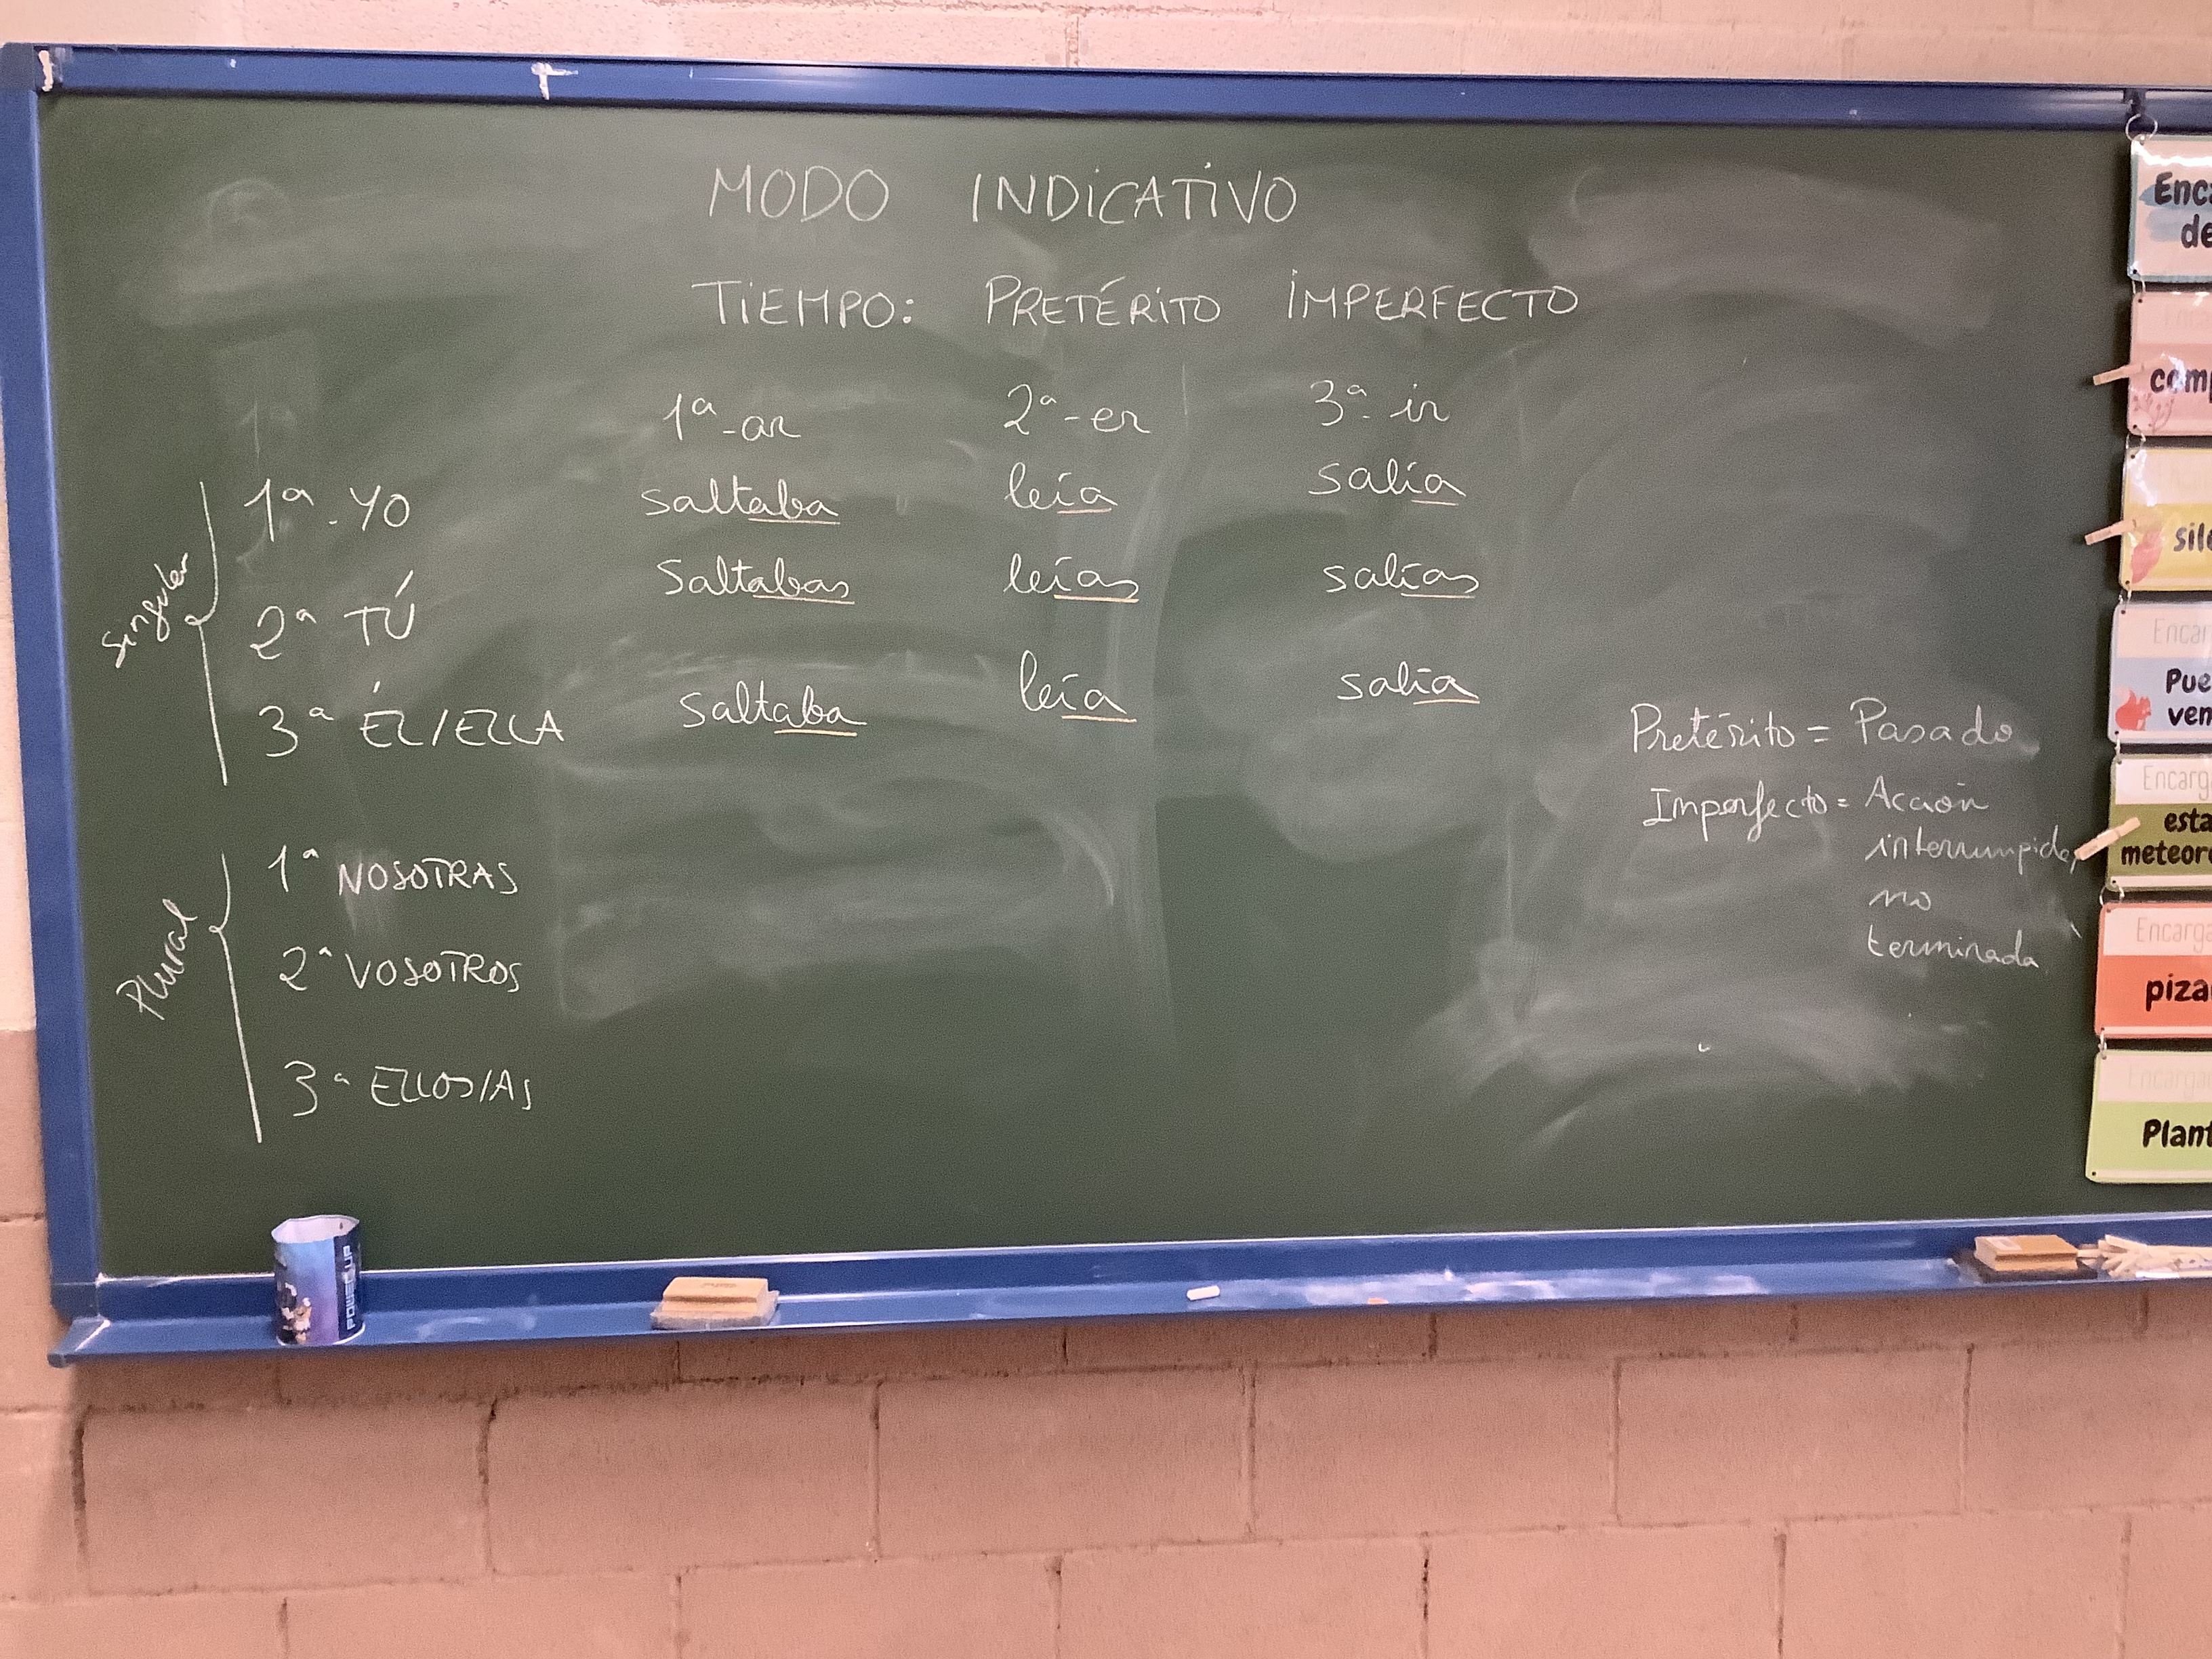 MODO INDICATIVO
TIEMPO: PRETÉRITO IMPERFECTO
1ª -ar 2ª -er 3ª -ir
Singular
1ª - YO saltaba leía salía
2ª TÚ saltabas leías salías
3ª ÉL/ELLA saltaba leía salía
Plural
1ª NOSOTRAS
2ª VOSOTROS
3ª ELLOS/AS
Pretérito = Pasado
Imperfecto = Acción
interrumpida,
no
terminada
Enca
de
comp
sil
Encar
Pue
ven
Encarg
esta
meteor
Encarga
piza
Encarga
Plant
POWERUP